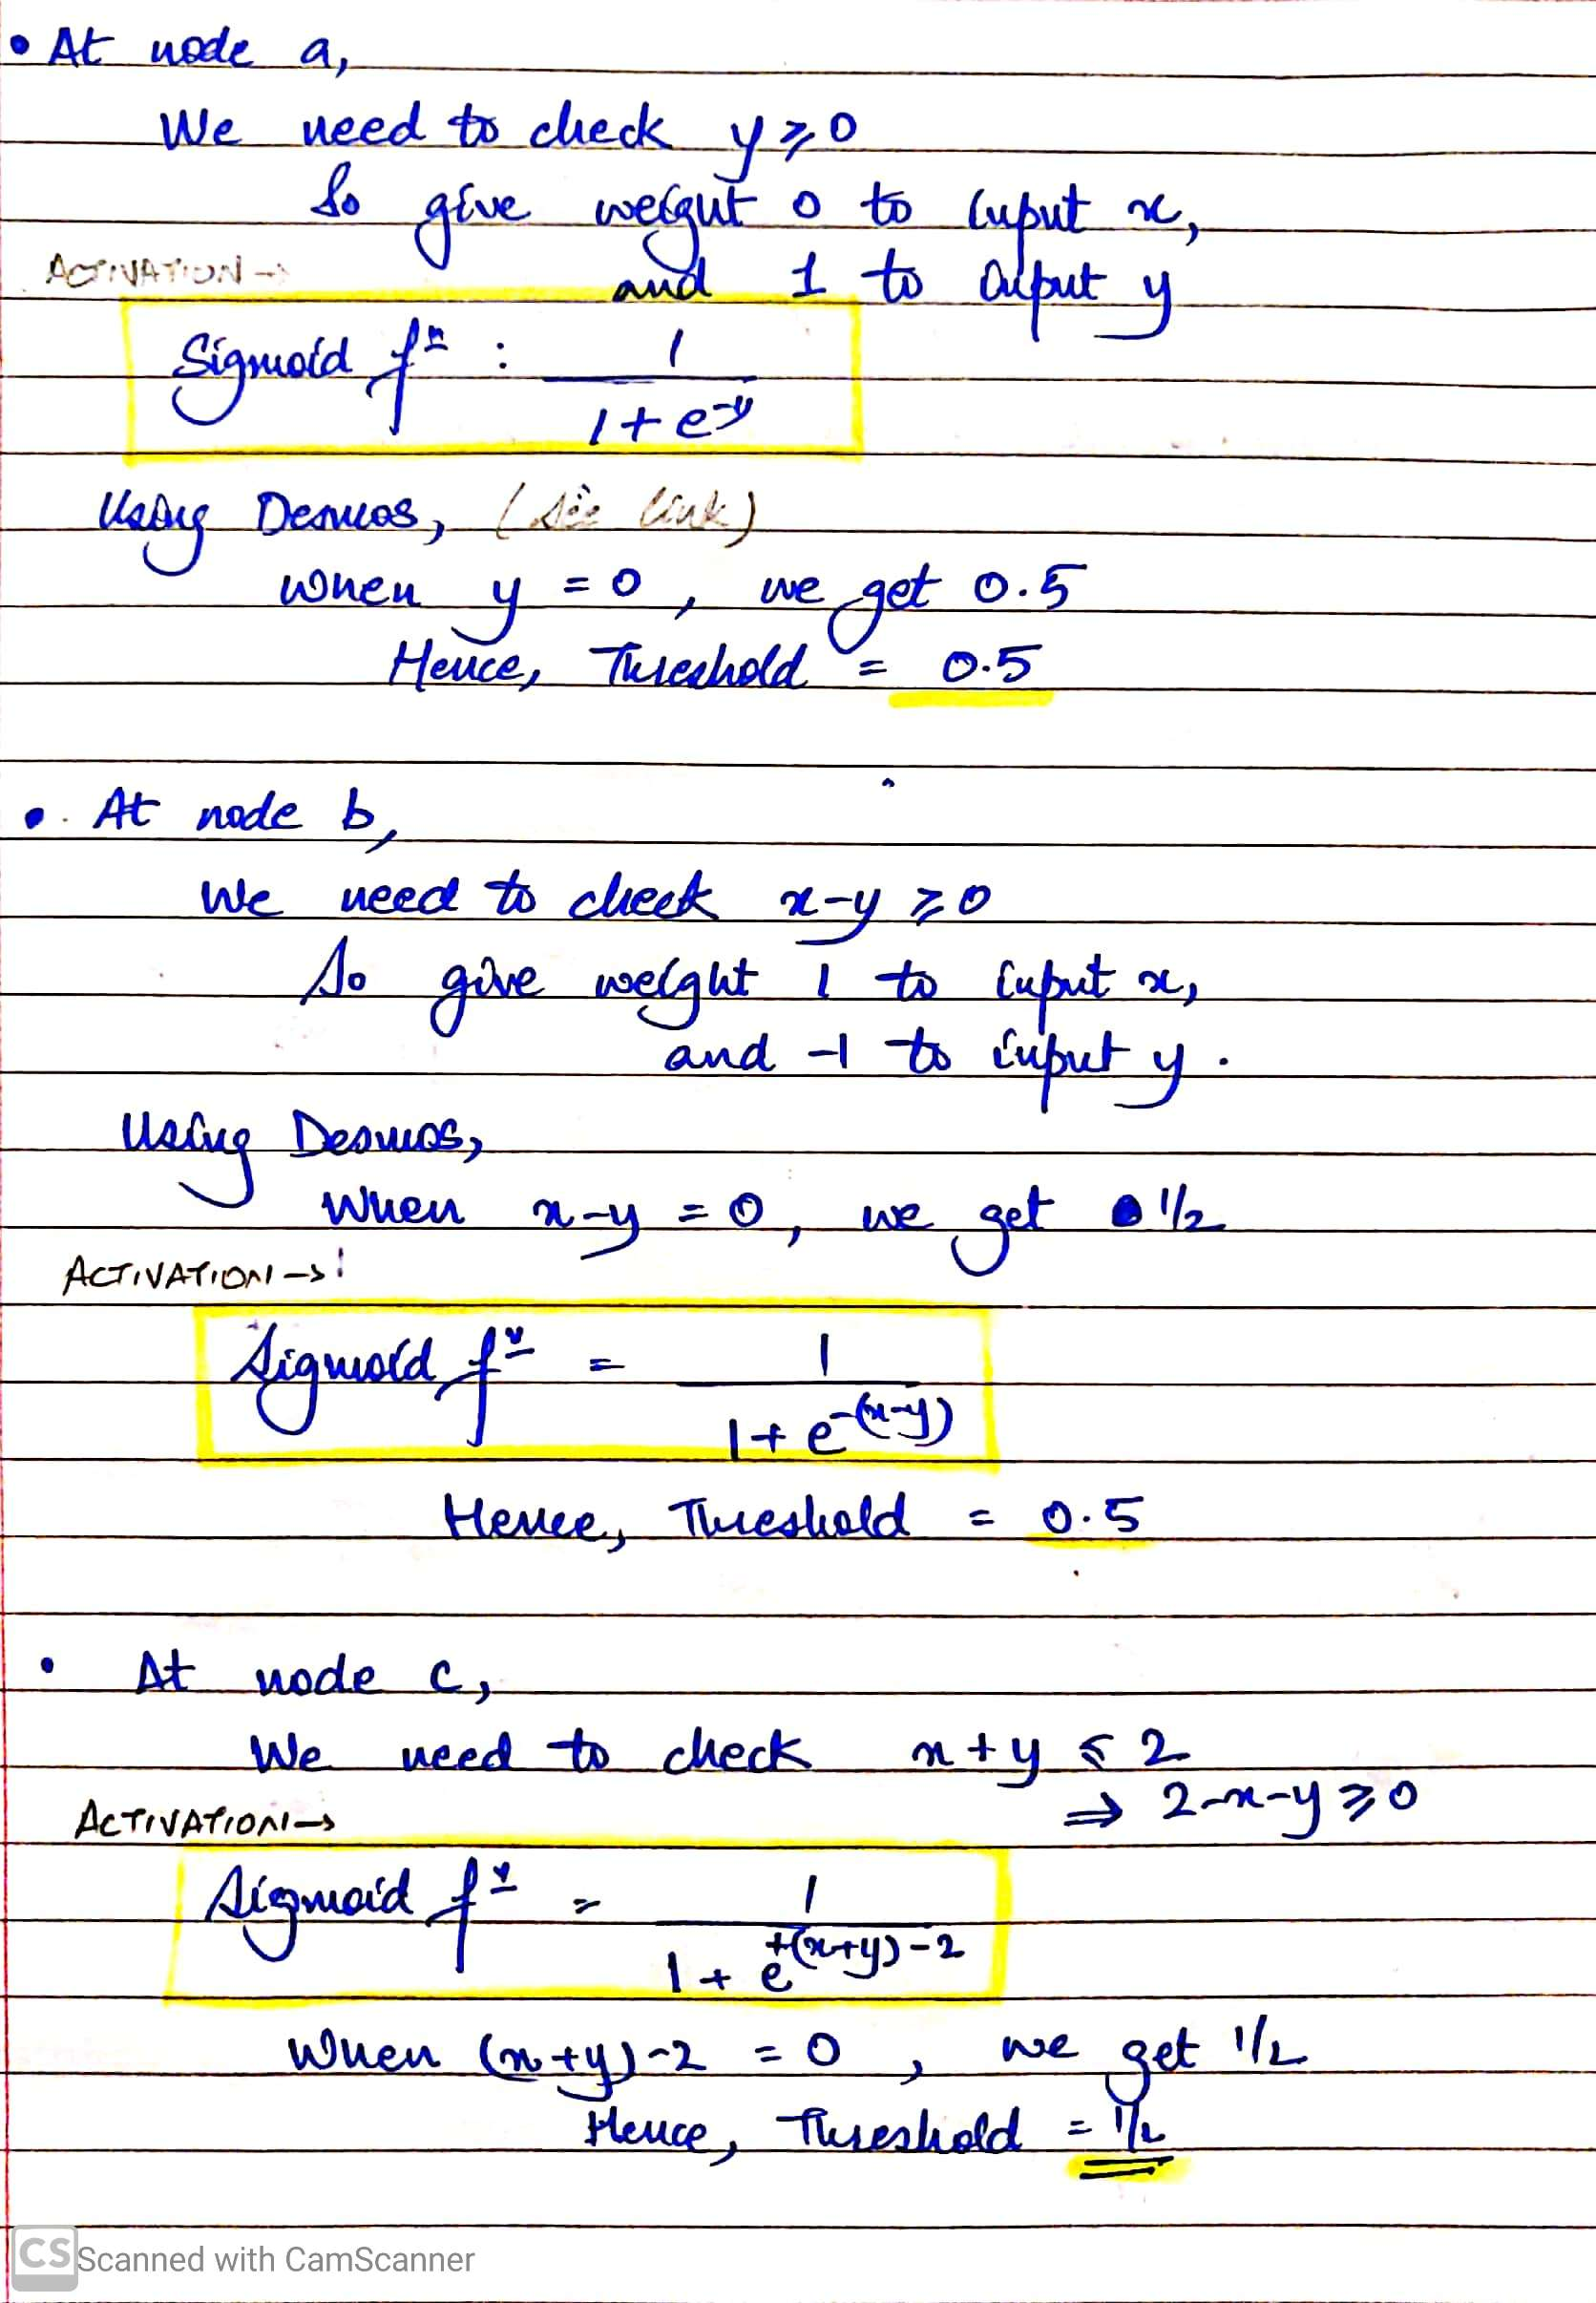 • At node a,
We need to check y ⩾ 0
So give weight 0 to input x,
ACTIVATION → and 1 to input y
Sigmoid fⁿ : 1 / (1 + e^-y)
Using Desmos, (see link)
When y = 0, we get 0.5
Hence, Threshold = 0.5
• At node b,
We need to check x-y ⩾ 0
So give weight 1 to input x,
and -1 to input y.
Using Desmos,
When x-y = 0, we get 1/2
ACTIVATION → !
Sigmoid fⁿ = 1 / (1 + e^-(x-y))
Hence, Threshold = 0.5
• At node c,
We need to check x+y ⩽ 2
⇒ 2-x-y ⩾ 0
ACTIVATION →
Sigmoid fⁿ = 1 / (1 + e^+(x+y)-2)
When (x+y)-2 = 0, we get 1/2
Hence, Threshold = 1/2
CS Scanned with CamScanner